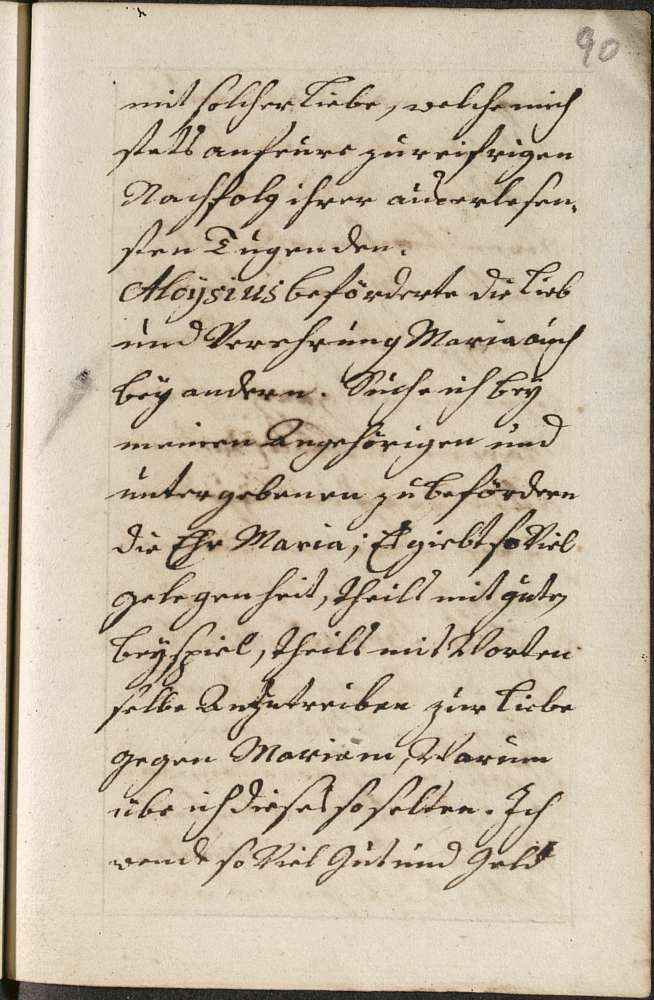 90
mit solcher Liebe, welche mich
stets anfeure zur eifrigen
Nachfolg ihrer auserlesen-
sten Tugenden.
Aloysius beförderte die Lieb
und Verehrung Maria auch
bey andern. Suche ich bey
meinen Angehörigen und
untergebenen zu befördern
die Ehr Maria; Es giebt so Viel
gelegenheit, theils mit guten
beyspiel, theils mit Worten
selbe Anzutreiben zur Liebe
gegen Mariam, Warum
übe ich dieses so selten. Ich
wende so Viel Gut und Geld